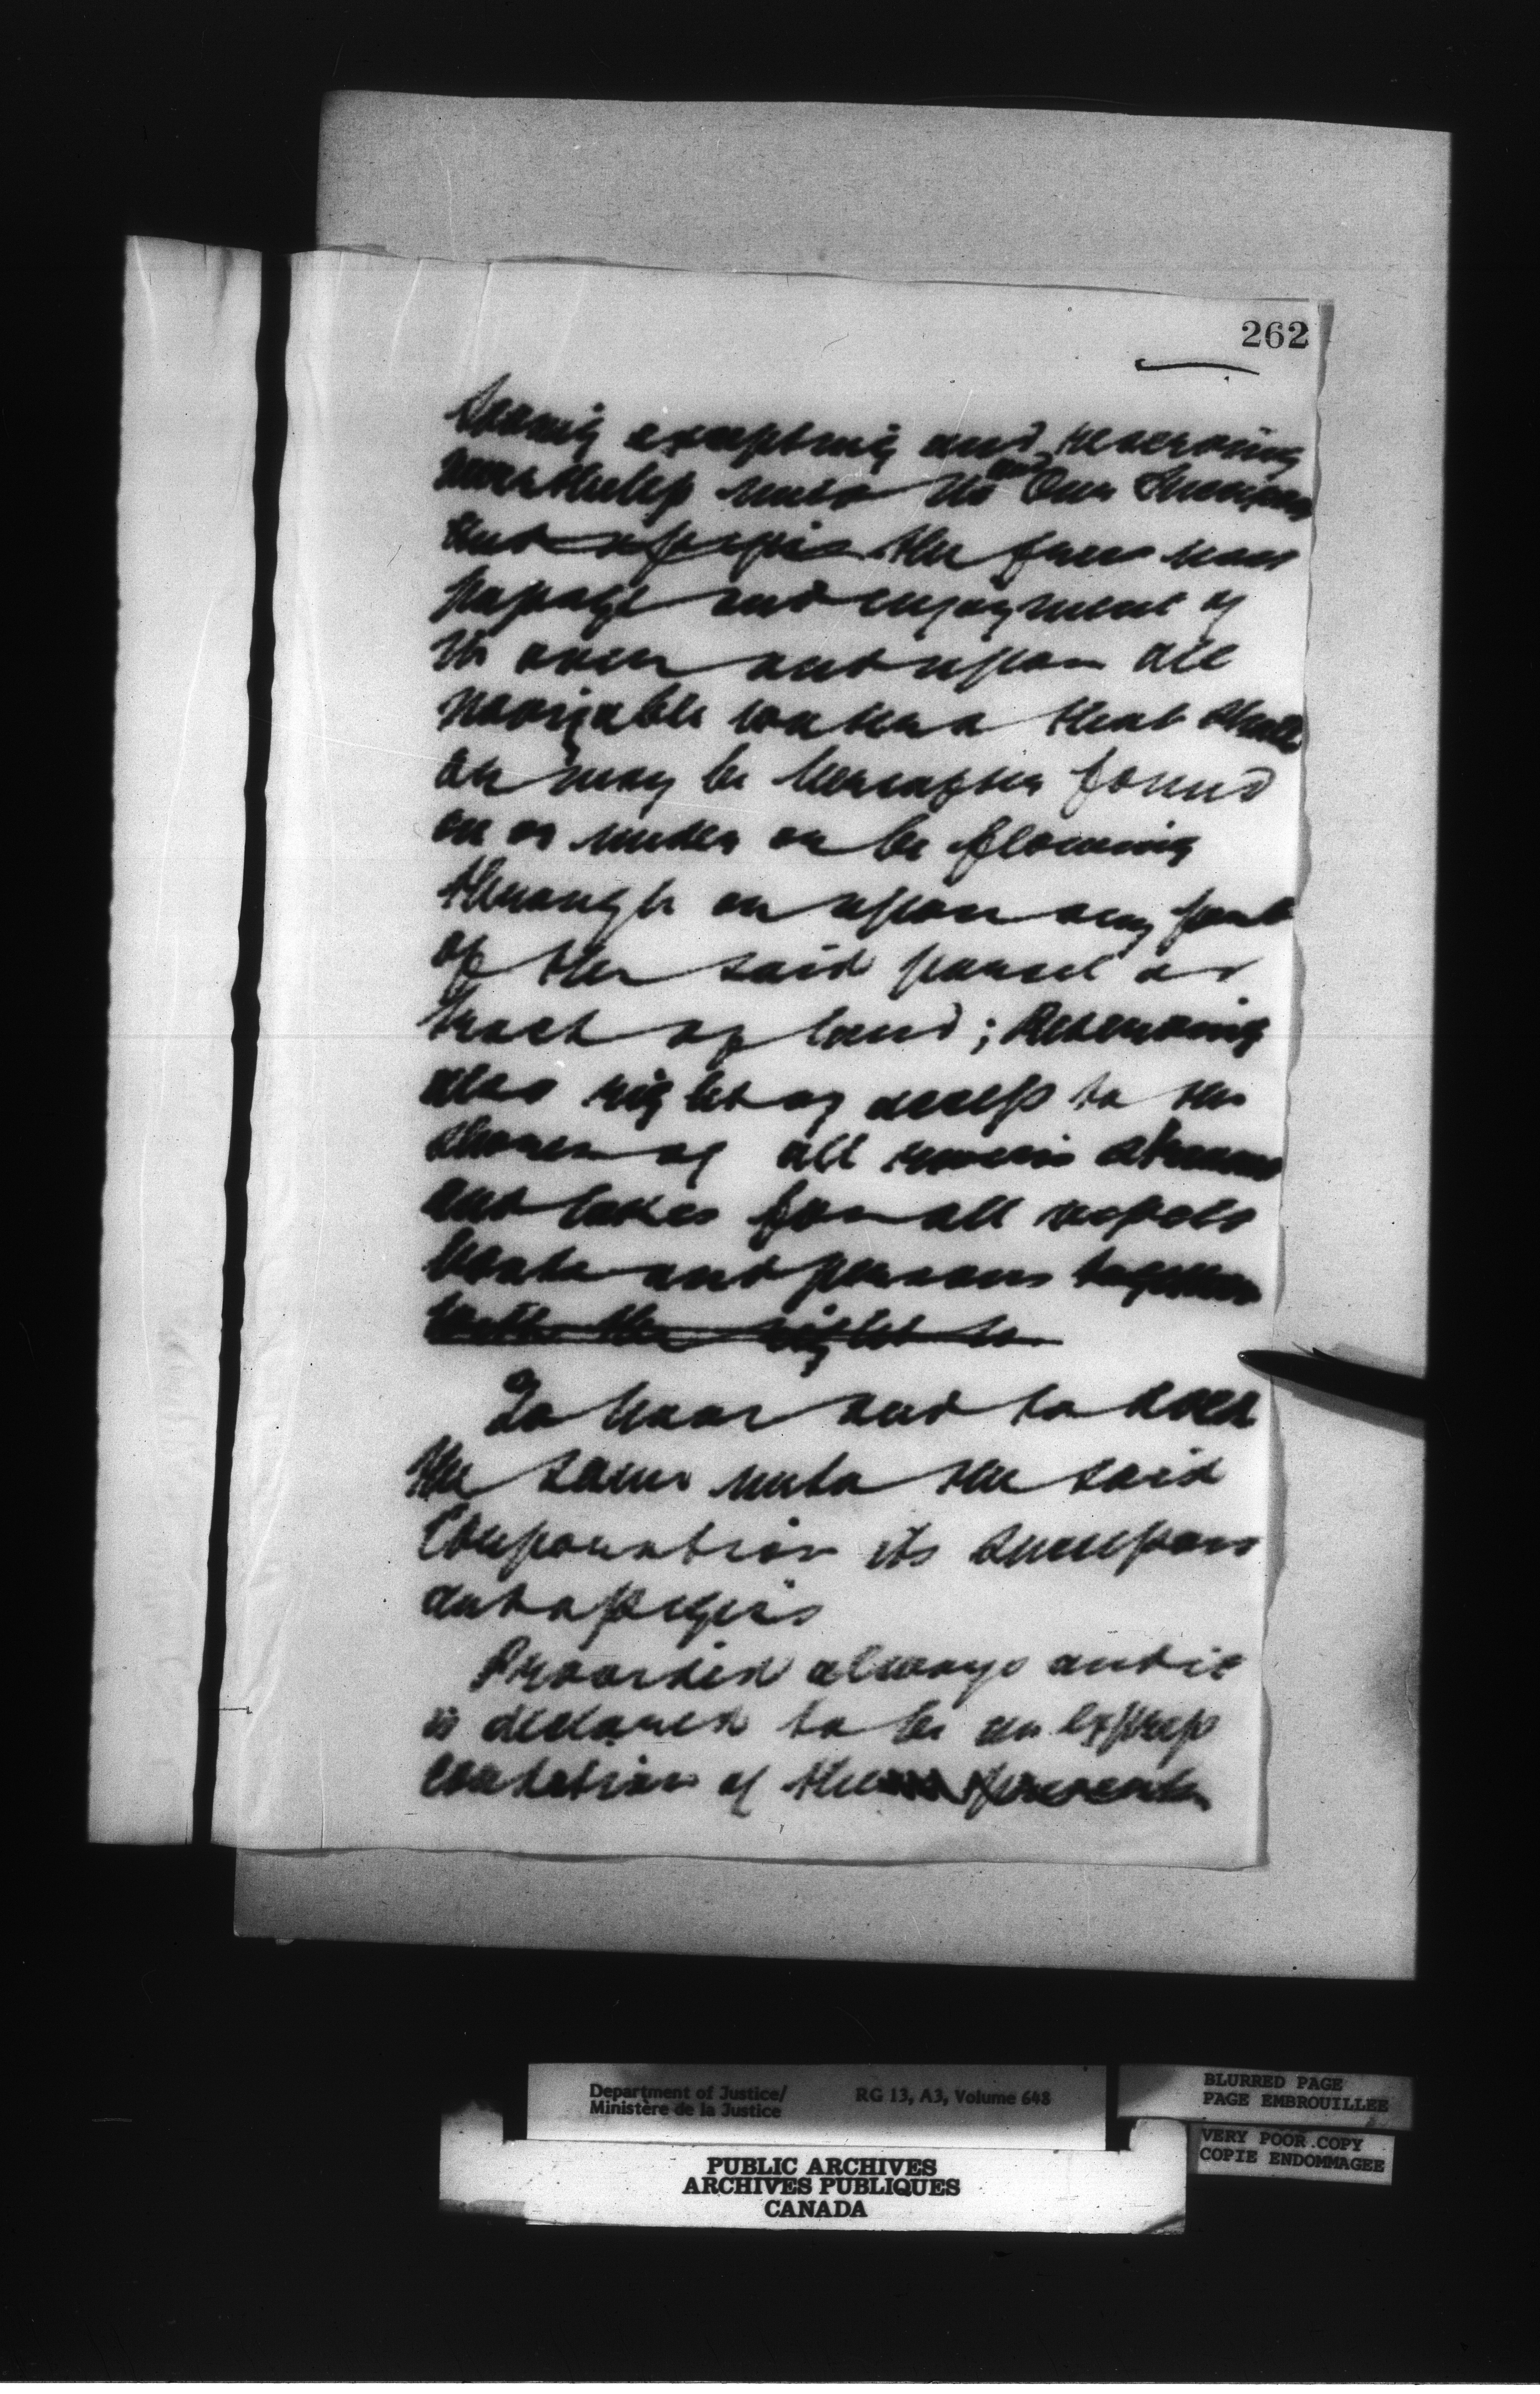 262
saving excepting and reserving
nevertheless unto Us and Our Successors
and assigns the free uses
passage and enjoyment of
in over and upon all
navigable waters that shall
or may be hereafter found
on or under or be flowing
through or upon any part
of the said parcel or
tract of land; Reserving
also right of access to the
shores of all rivers streams
and lakes for all vessels
boats and persons together
with the right to
To have and to hold
the same unto the said
Corporation its successors
and assigns
Provided always and it
is declared to be an express
condition of these presents
Department of Justice/
Ministère de la Justice
RG 13, A3, Volume 648
BLURRED PAGE
PAGE EMBROUILLEE
VERY POOR COPY
COPIE ENDOMMAGEE
PUBLIC ARCHIVES
ARCHIVES PUBLIQUES
CANADA